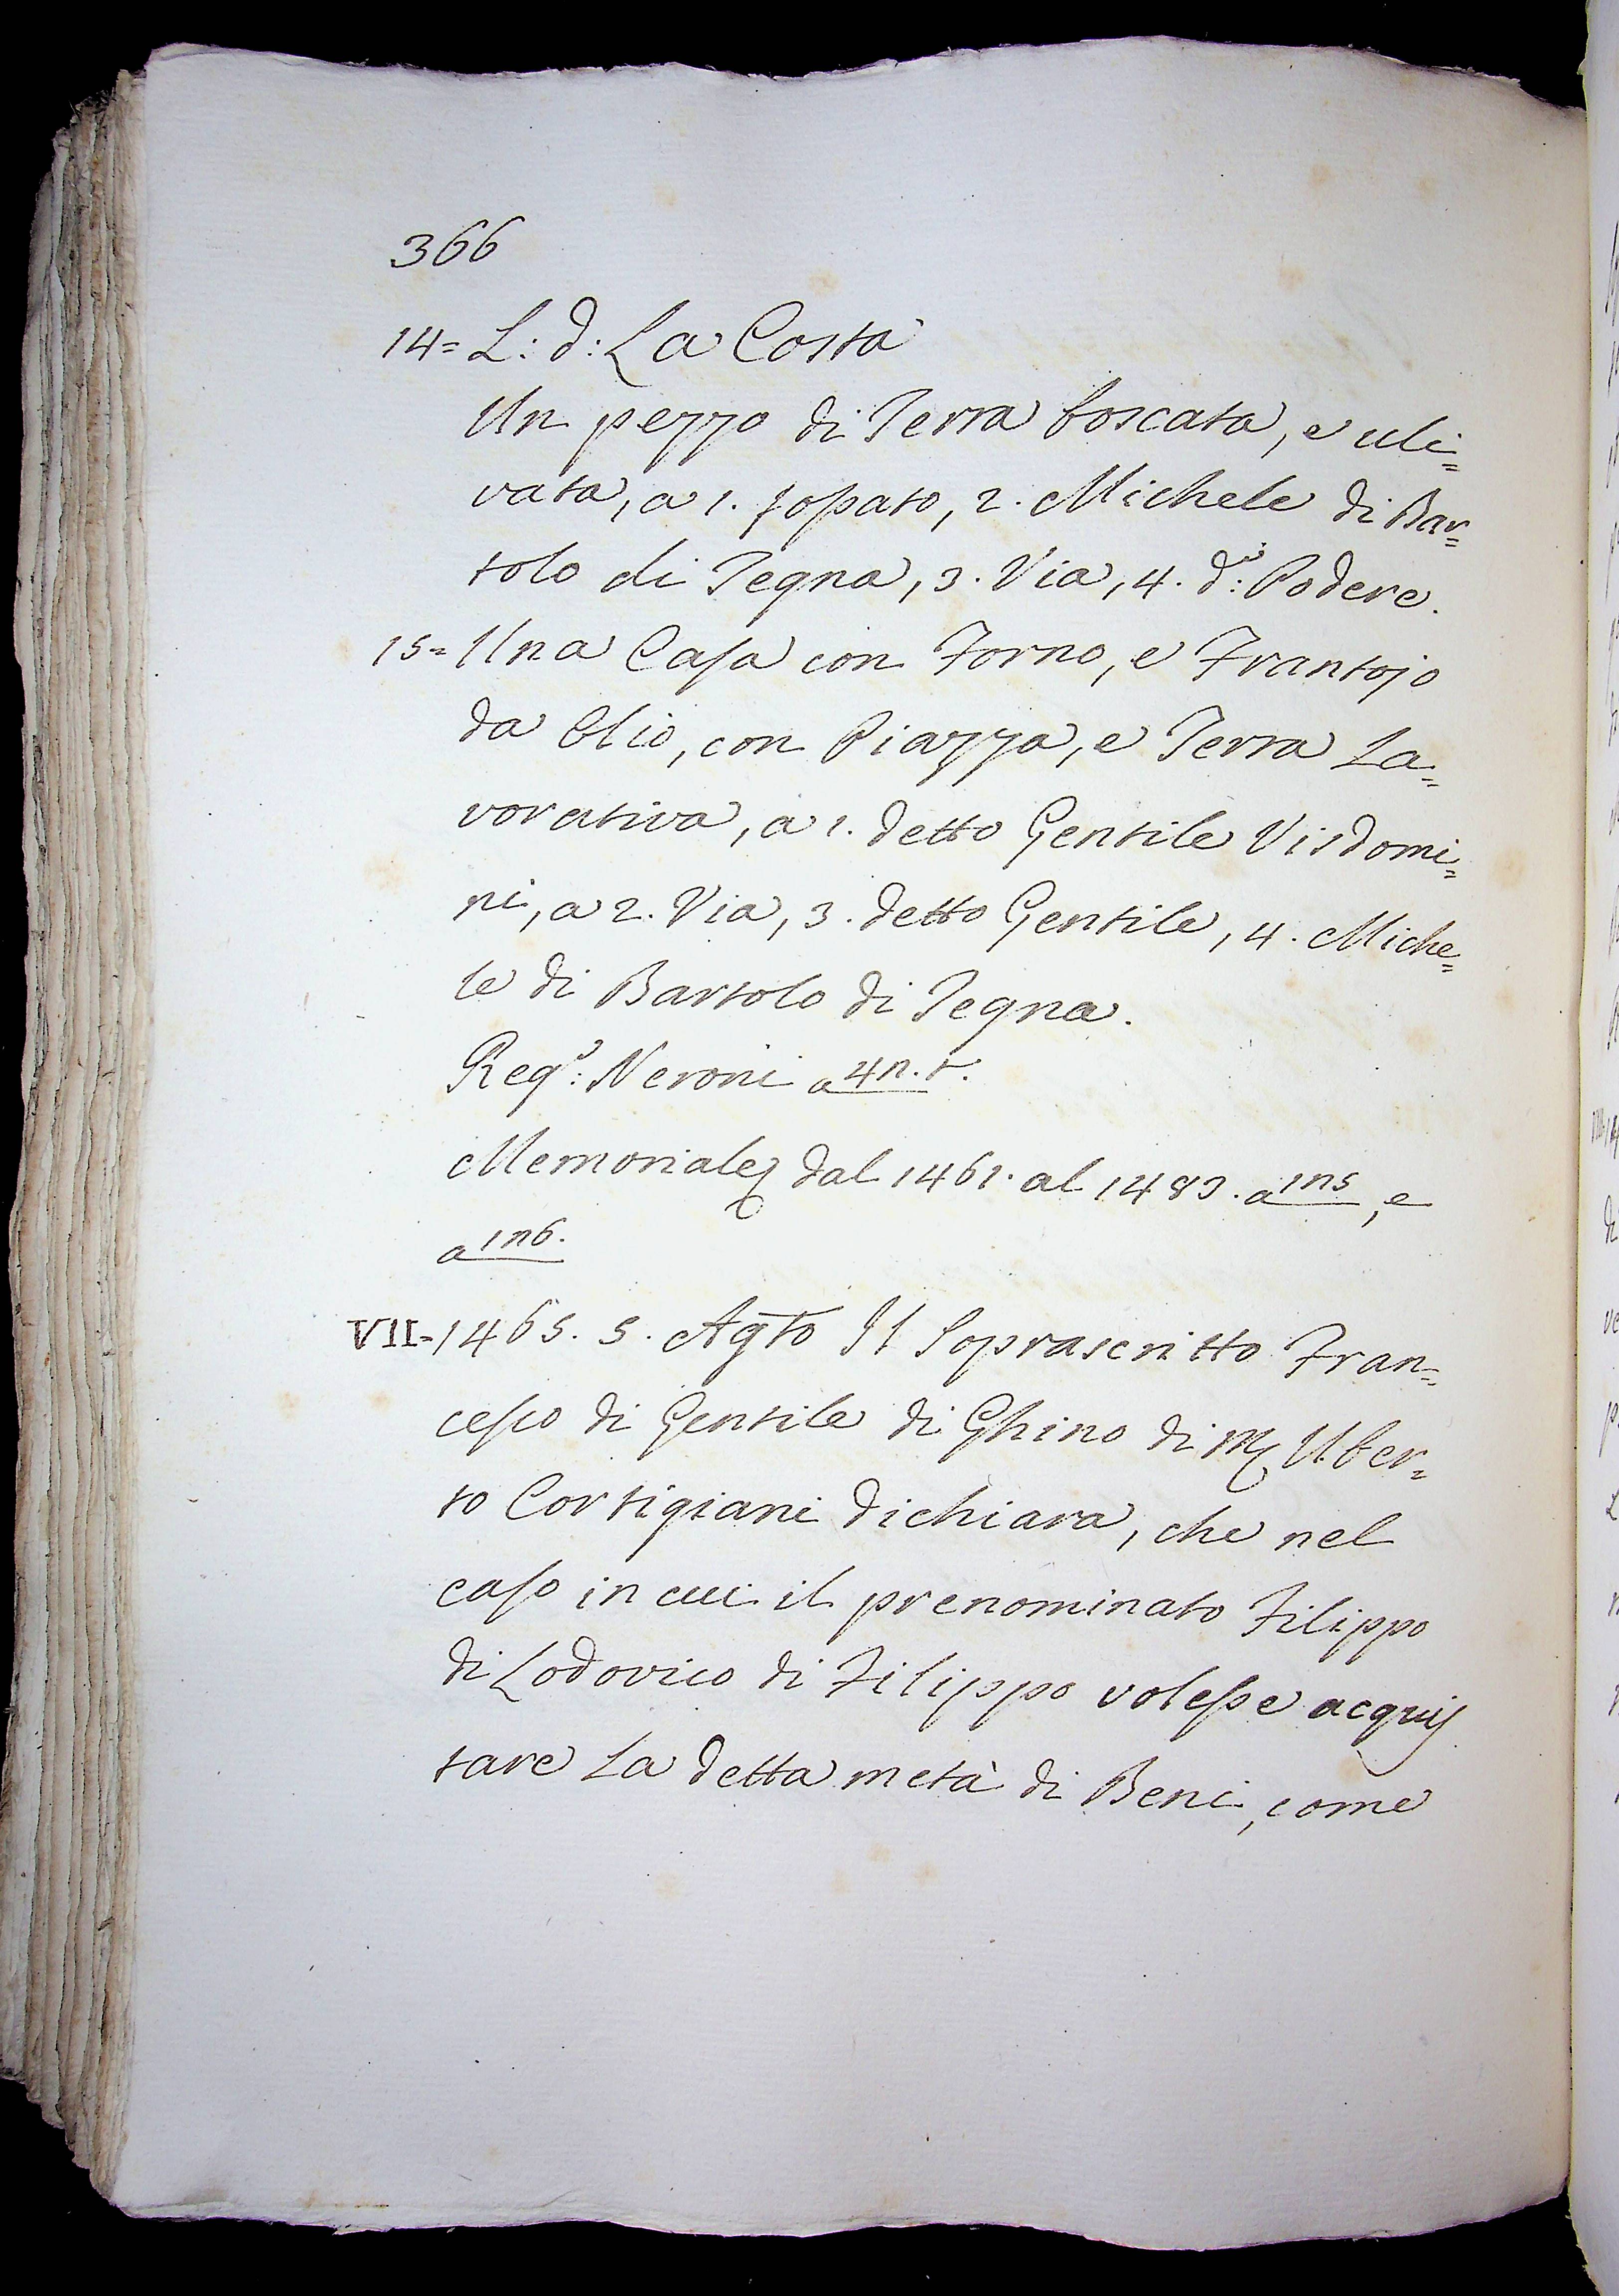 366
14= L: d: La Costa
Un pezzo di Terra boscata, e uli=
vata, a 1. fossato, 2. Michele di Bar=
tolo di Tegna, 3. Via, 4. dº: Podere.
15= Una Casa con Forno, e Frantojo
da Olio, con Piazza, e Terra La=
vorativa, a 1. detto Gentile Visdomi=
ni, a 2. Via, 3. detto Gentile, 4. Miche=
le di Bartolo di Tegna.
Regº: Neroni a
Memoriale dal 1461. al 1483. a 115, e
a 116.
VII=1465. 5. Agto Il Soprascritto Fran=
cesco di Gentile di Ghino di M Uber=
to Cortigiani dichiara, che nel
caso in cui il prenominato Filippo
di Lodovico di Filippo volesse acquis
tare La detta metà di Beni, come